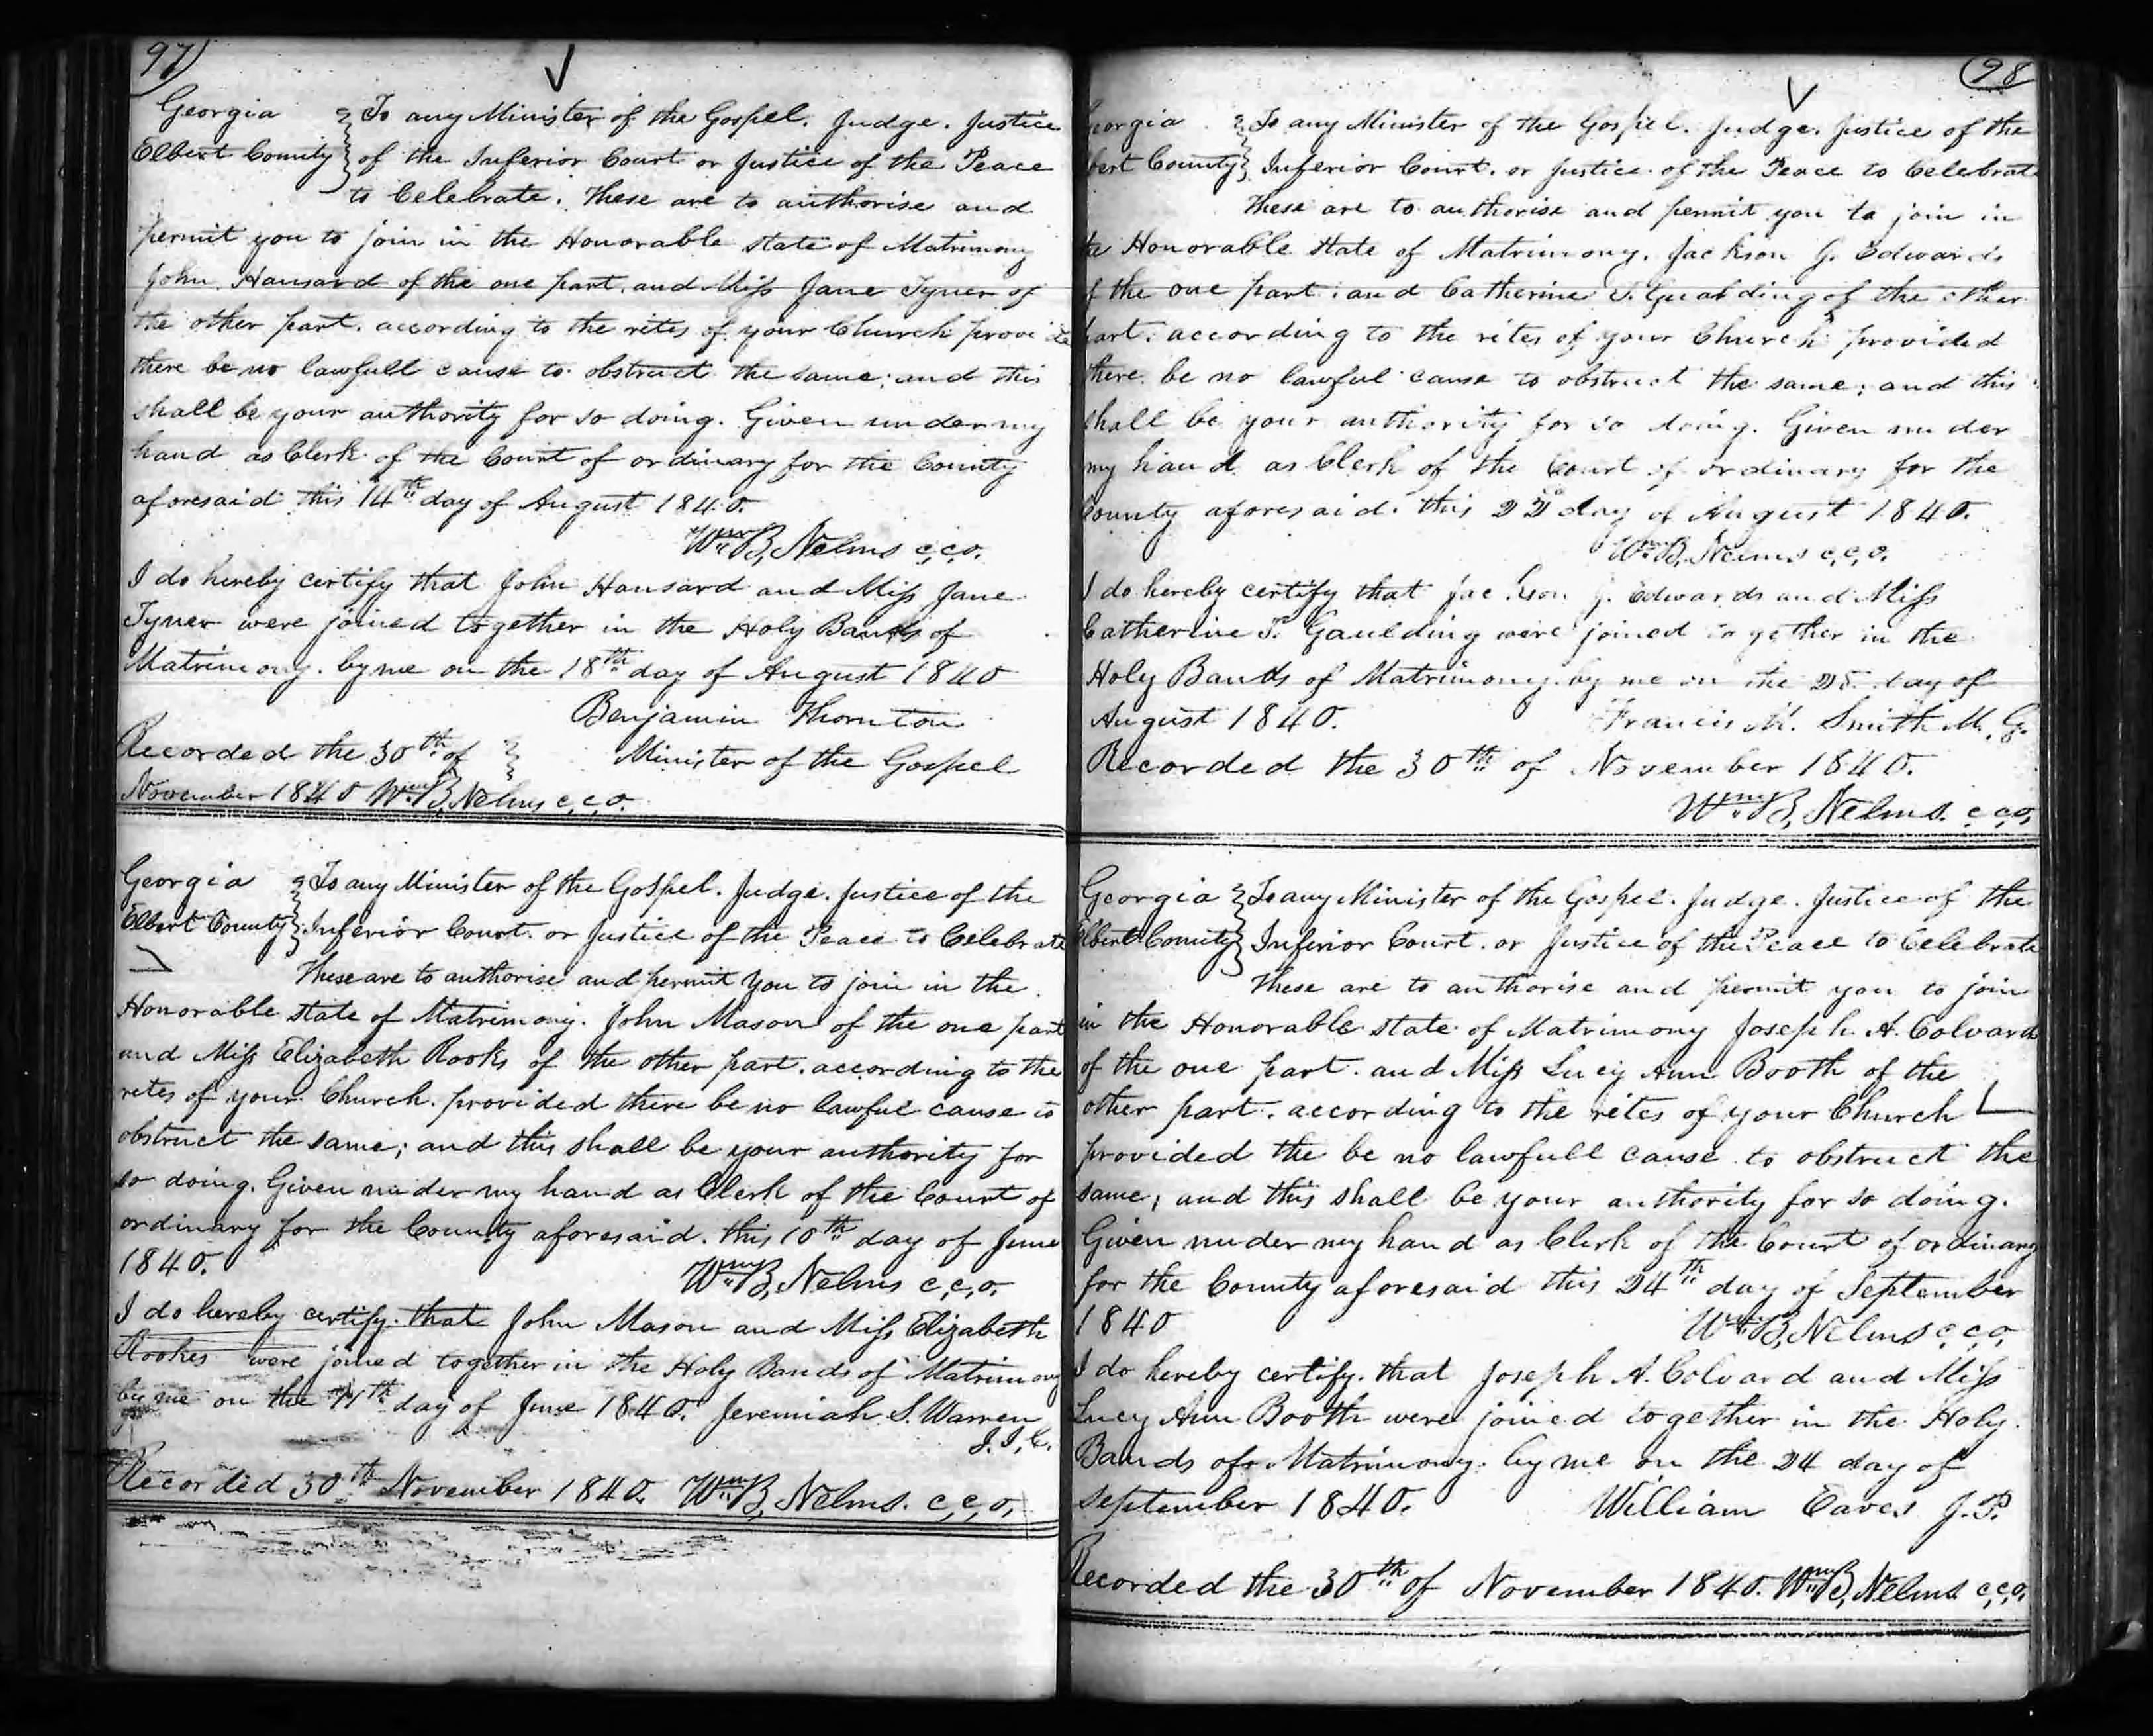 97)
Georgia } To any Minister of the Gospel. Judge. Justice
Elbert County } of the Inferior Court or Justice of the Peace
to Celebrate. These are to authorise and
permit you to join in the Honorable state of Matrimony
John Hansard of the one part. and Miss Jane Tyner of
the other part. according to the rites of your Church provide
there be no lawfull cause to obstruct the same; and this
shall be your authority for so doing. Given under my
hand as Clerk of the Court of ordinary for the County
aforesaid this 14th day of August 1840.
Wm B, Nelms c,c,o.
I do hereby certify that John Hansard and Miss Jane
Tyner were joined together in the Holy Bands of
Matrimony. by me on the 18th day of August 1840
Benjamin Thornton
Recorded the 30th of } Minister of the Gospel
November 1840 Wm B, Nelms c,c,o.
Georgia } To any Minister of the Gospel. Judge. Justice of the
Elbert County } Inferior Court. or Justice of the Peace to Celebrate
These are to authorise and permit you to join in the
Honorable state of Matrimony. John Mason of the one part
and Miss Elizabeth Rooks of the other part. according to the
rites of your Church. provided there be no lawful cause to
obstruct the same; and this shall be your authority for
so doing. Given under my hand as Clerk of the Court of
ordinary for the County aforesaid. this 10th day of June
1840.
Wm B, Nelms c,c,o.
I do hereby certify. that John Mason and Miss Elizabeth
Rookes were joined together in the Holy Bands of Matrimony
by me on the 11th day of June 1840. Jeremiah S. Warren
J. I, C.
Recorded 30th November 1840. Wm B, Nelms. c,c,o,
98
eorgia } To any Minister of the Gospel. Judge. Justice of the
bert County } Inferior Court. or Justice of the Peace to Celebrate
These are to authorise and permit you to join in
the Honorable state of Matrimony. Jackson J. Edwards
of the one part. and Catherine T. Gualding of the other
part. according to the rites of your Church provided
there be no lawful cause to obstruct the same; and this
shall be your authority for so doing. Given under
my hand as Clerk of the Court of ordinary for the
County aforesaid. this day of August 1840.
Wm B, Nelms c,c,o.
I do hereby certify that Jackson J. Edwards and Miss
Catherine T. Gaulding were joined together in the
Holy Bands of Matrimony. by me on the 25. day of
August 1840. Francis M. Smith M. G.
Recorded the 30th of November 1840.
Wm B, Nelms. c,c,o,
Georgia } To any Minister of the Gospel. Judge. Justice of the
Elbert County } Inferior Court. or Justice of the Peace to Celebrate
These are to authorise and permit you to join
in the Honorable state of Matrimony Joseph A. Colvard
of the one part. and Miss Lucy Ann Booth of the
other part. according to the rites of your Church
provided the be no lawfull cause to obstruct the
same; and this shall be your authority for so doing.
Given under my hand as Clerk of the Court of ordinary
for the County aforesaid this 24th day of September
1840 Wm B, Nelms c,c,o,
I do hereby certify. that Joseph A. Colvard and Miss
Lucy Ann Booth were joined together in the Holy
Bands of Matrimony. by me on the 24 day of
September 1840. William Eaves J. P.
Recorded the 30th of November 1840. Wm B, Nelms c,c,o,